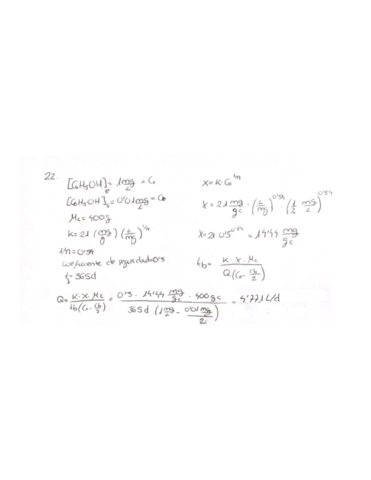 22.
[C6H5OH]e = 1 mg/L = Co
[C6H5OH]s = 0'01 mg/L = Cb
Mc = 400g
K = 21 (mg/g) (L/mg)^1/n
1/n = 0'54
coeficiente de seguridad 0'5
tb = 365d
X = K · Co^1/n
X = 21 mg/gc · (L/mg)^0'54 · (1/2 mg/L)^0'54
X = 21 · 0'5^0'54 = 14'44 mg/gc
tb = K · X · Mc / Q (Co - Cb/2)
Q = K · X · Mc / tb (Co - Cb/2) = 0'5 · 14'44 mg/gc · 400 gc / 365d (1 mg/L - 0'01 mg/L / 2) =